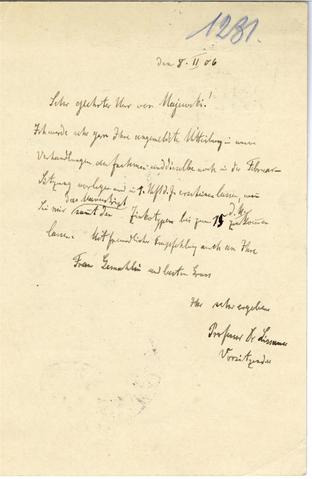 1281.
den 8. II 06
Sehr geehrter Herr von Majewski!
Ich werde sehr gern Ihre angemeldete Mitteilung in unsere
Verhandlungen aufnehmen und dieselbe noch in die Februar-
Sitzung vorlegen und in 1. Heft d. J. erscheinen lassen, wenn
Sie mir das Manuskript samt den Zinkotypen bis zum 15 d. M. zukommen
lassen. Mit freundlicher Empfehlung auch an Ihre
Frau Gemahlin und besten Gruss
Ihr sehr ergebener
Professor Dr Lissauer
Vorsitzender